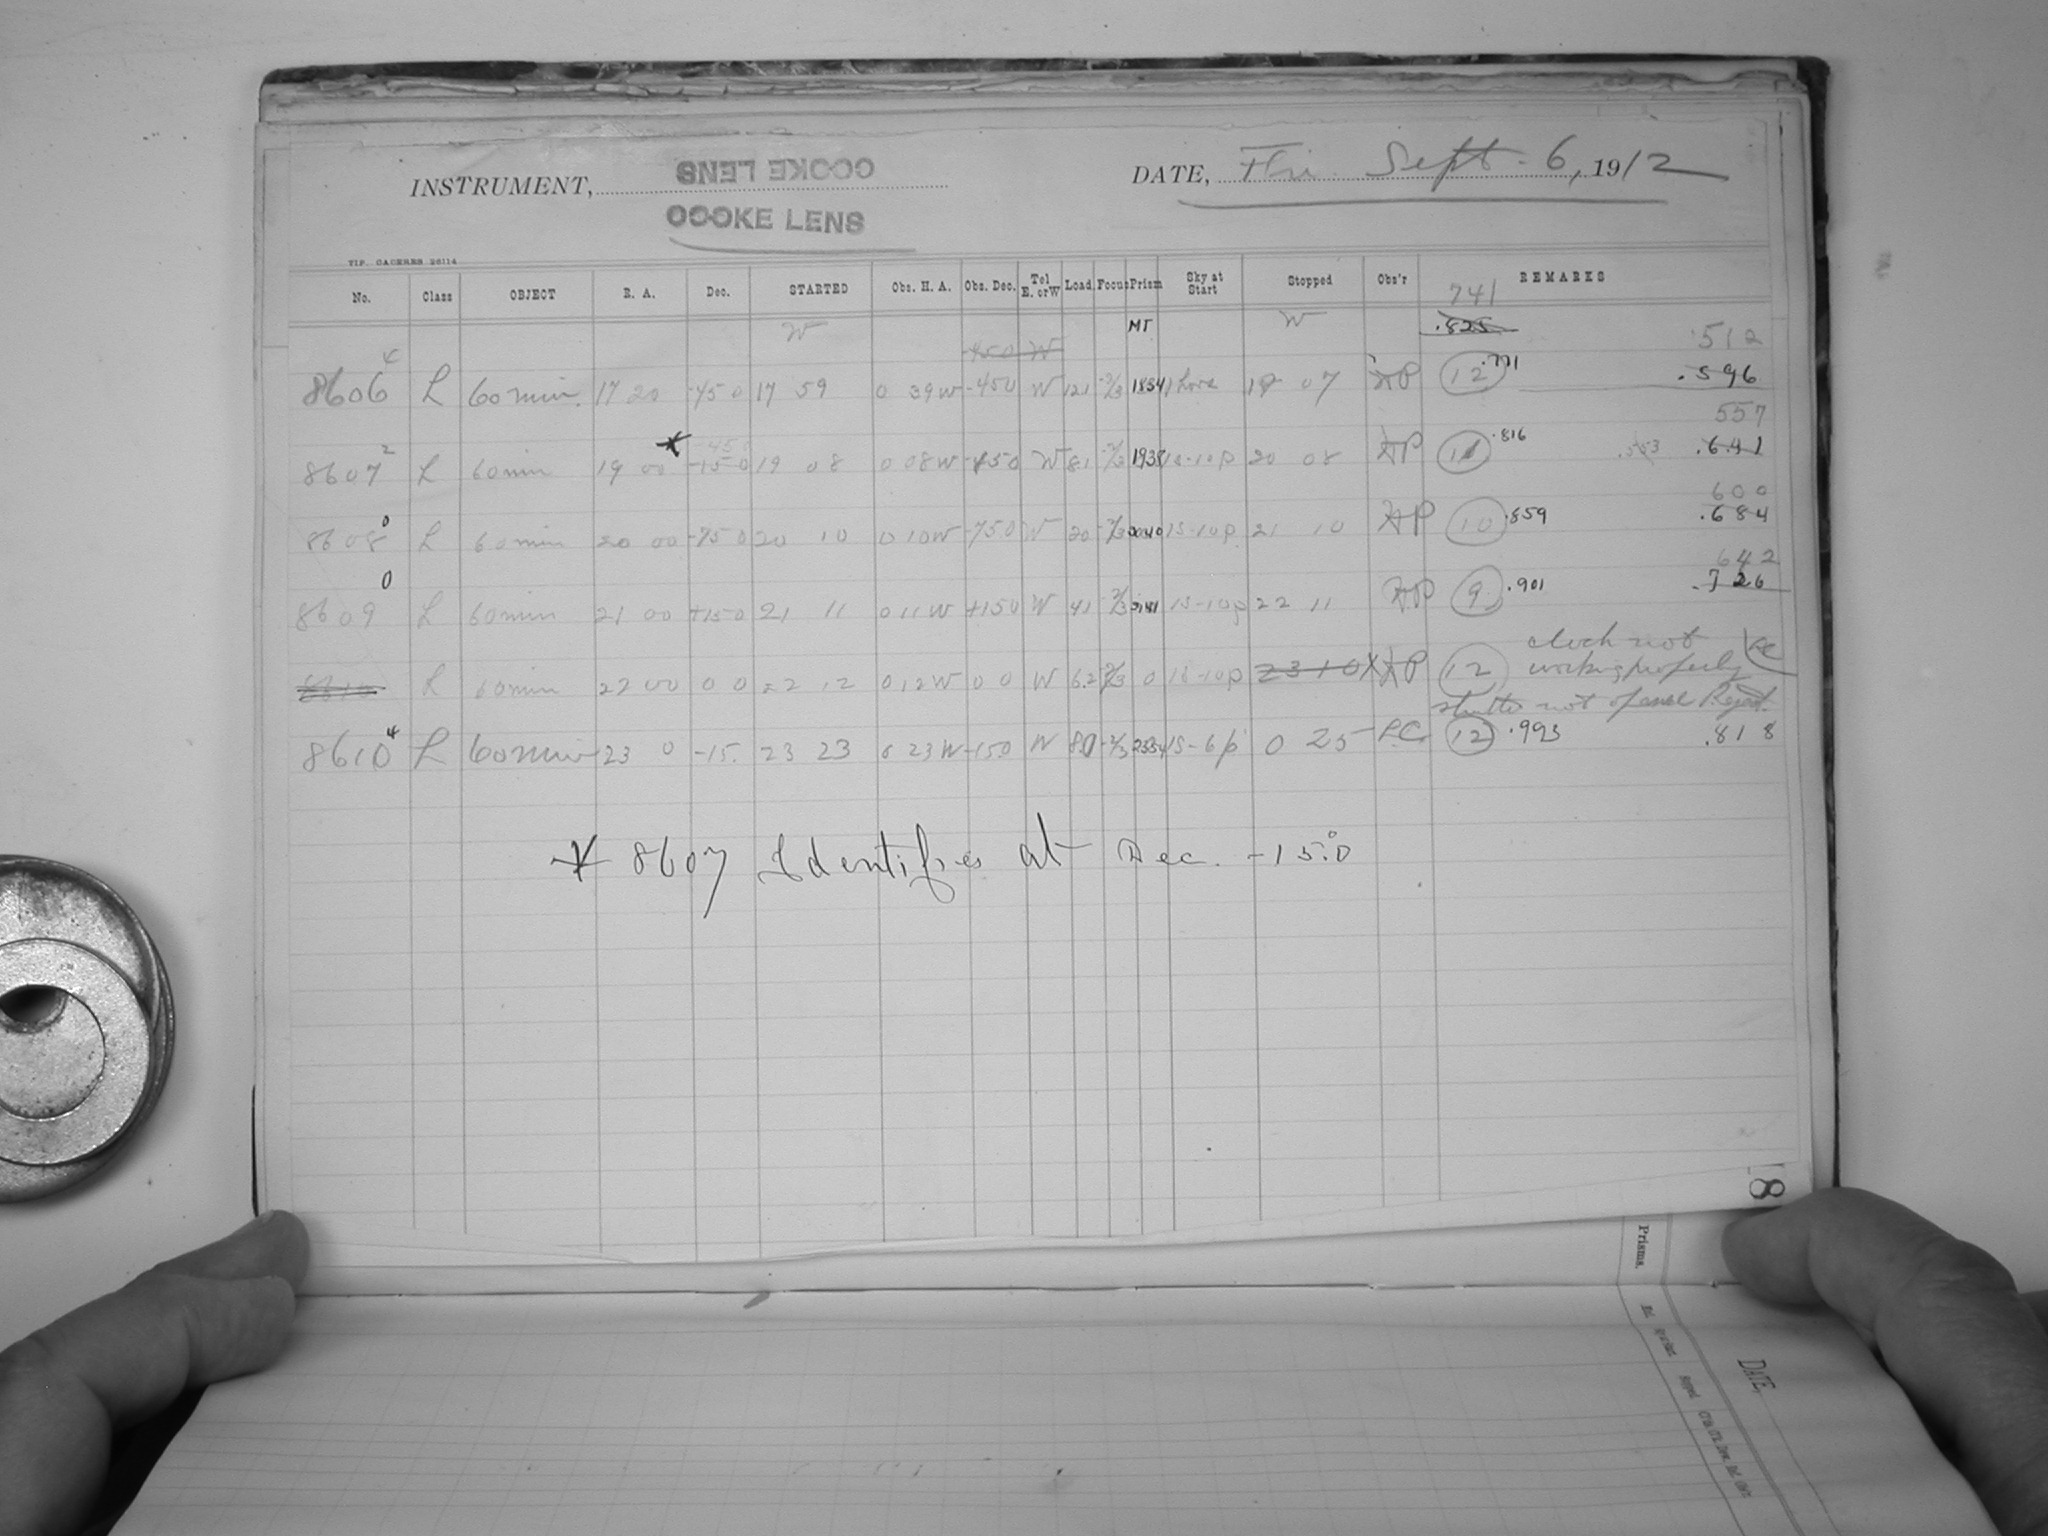 COOKE LENS
INSTRUMENT, DATE, Fri. Sept. 6, 1912
COOKE LENS
TIP. CACERES 26114
No. Class OBJECT R. A. Dec. STARTED Obs. H. A. Obs. Dec. Tel E. or W Load Focus Prism Sky at Start Stopped Obs'r REMARKS
741
W MT W .825 .512
-450 W
8606 4 L 60 min. 17 20 -45 0 17 59 0 39 W -450 W 121 -2/3 1834 07 (12) .771 .596
557
8607 2 L 60 min 19 00 -15 0 19 08 0 08 W -450 W 81 -2/3 1938 1S-10p 20 08 (11) .816 .641
600
8608 0 L 60 min 20 00 -75 0 20 10 0 10 W -750 W 20 -2/3 2040 1S-10p 21 10 (10) .859 .684
642
8609 0 L 60 min 21 00 +15 0 21 11 0 11 W +150 W 41 -2/3 2141 1S-10p 22 11 (9) .901 .726
clock not
8610 L 60 min 22 00 0 0 22 12 0 12 W 0 0 W 6.2 -2/3 0 1S-10p 23 10 X (12) working properly
shutter not Reject.
8610 4 L 60 min 23 0 -15. 23 23 0 23 W -150 W 80 -2/3 2354 1S-6p 0 25 L.C. (12) .993 .818
* 8607 Identifies at Dec. -15.°0
18
Prisms.
DATE,